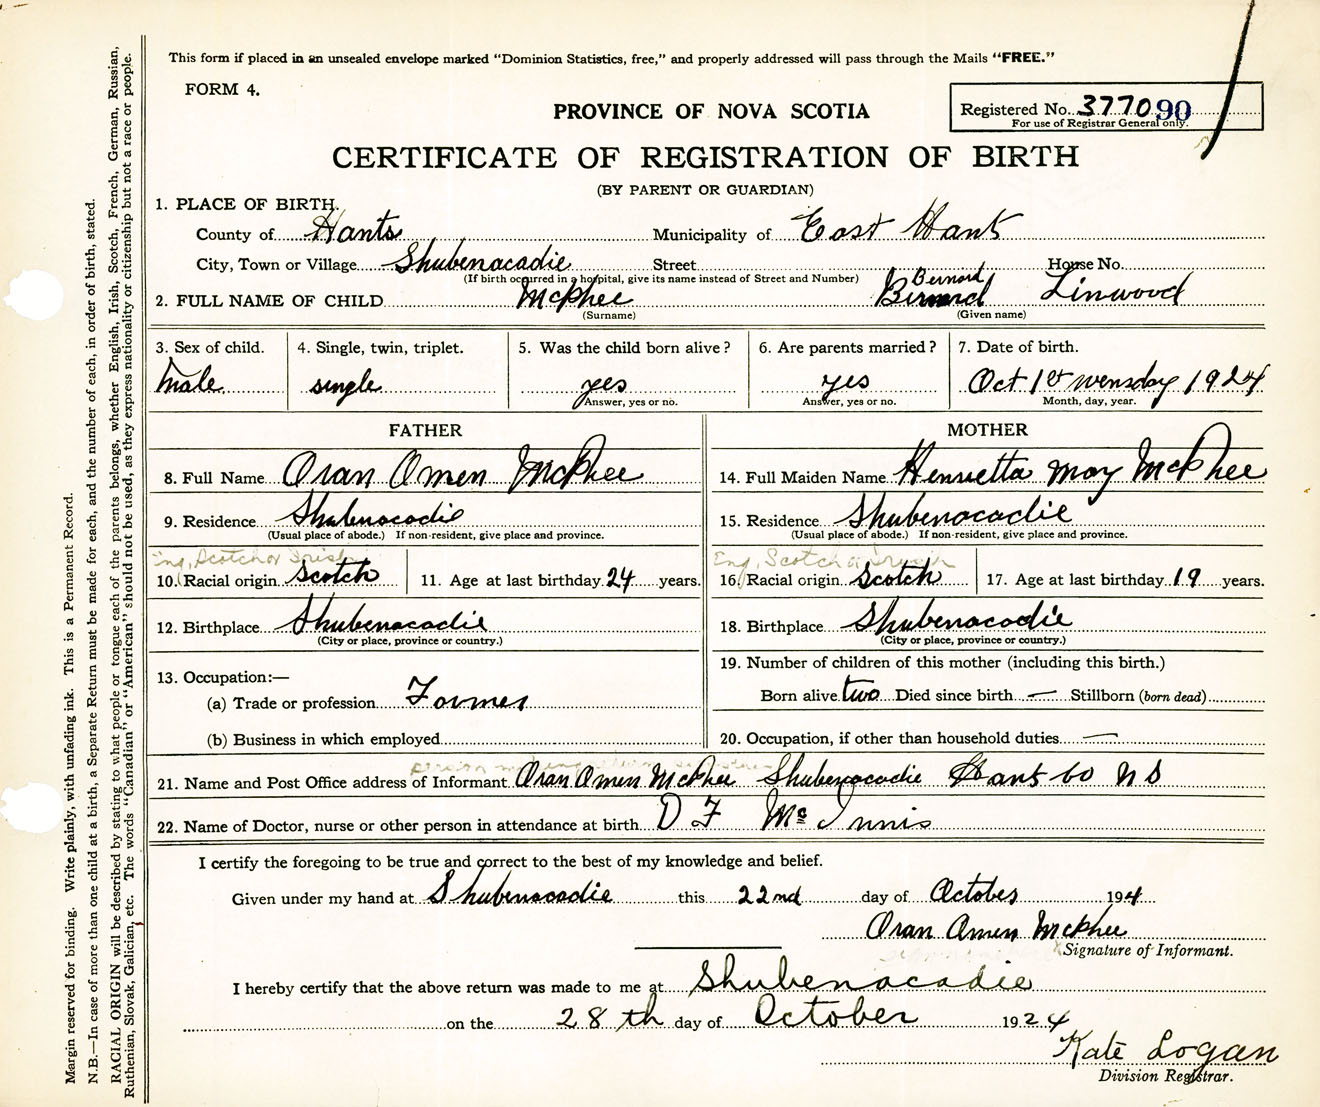 This form if placed in an unsealed envelope marked "Dominion Statistics, free," and properly addressed will pass through the Mails "FREE."
FORM 4.
PROVINCE OF NOVA SCOTIA
Registered No. 3770 90
For use of Registrar General only.
CERTIFICATE OF REGISTRATION OF BIRTH
(BY PARENT OR GUARDIAN)
1. PLACE OF BIRTH.
County of Hants Municipality of East Hants
City, Town or Village Shubenacadie Street House No.
(If birth occurred in a hospital, give its name instead of Street and Number)
Bernard
2. FULL NAME OF CHILD McPhee Bernard Linwood
(Surname) (Given name)
3. Sex of child. 4. Single, twin, triplet. 5. Was the child born alive? 6. Are parents married? 7. Date of birth.
male single yes yes Oct 1st wensday 1924
Answer, yes or no. Answer, yes or no. Month, day, year.
FATHER MOTHER
8. Full Name Oran Omen McPhee 14. Full Maiden Name Henrietta May McPhee
9. Residence Shubenacadie 15. Residence Shubenacadie
(Usual place of abode.) If non-resident, give place and province. (Usual place of abode.) If non-resident, give place and province.
Eng, Scotch or Irish Eng, Scotch or Irish
10. Racial origin Scotch 11. Age at last birthday 24 years. 16. Racial origin Scotch 17. Age at last birthday 19 years.
12. Birthplace Shubenacadie 18. Birthplace Shubenacadie
(City or place, province or country.) (City or place, province or country.)
19. Number of children of this mother (including this birth.)
13. Occupation:—
(a) Trade or profession Farmer Born alive two Died since birth — Stillborn (born dead)
(b) Business in which employed 20. Occupation, if other than household duties —
21. Name and Post Office address of Informant Oran Omen McPhee Shubenacadie Hants Co N S
22. Name of Doctor, nurse or other person in attendance at birth D F McInnis
I certify the foregoing to be true and correct to the best of my knowledge and belief.
Given under my hand at Shubenacadie this 22nd day of October 1924
Oran Omen McPhee
Signature of Informant.
I hereby certify that the above return was made to me at Shubenacadie
on the 28th day of October 1924
Kate Logan
Division Registrar.
Margin reserved for binding. Write plainly, with unfading ink. This is a Permanent Record.
N.B.—In case of more than one child at a birth, a Separate Return must be made for each, and the number of each, in order of birth, stated.
RACIAL ORIGIN will be described by stating to what people or tongue each of the parents belongs, whether English, Irish, Scotch, French, German, Russian,
Ruthenian, Slovak, Galician, etc. The words "Canadian" or "American" should not be used, as they express nationality or citizenship but not a race or people.